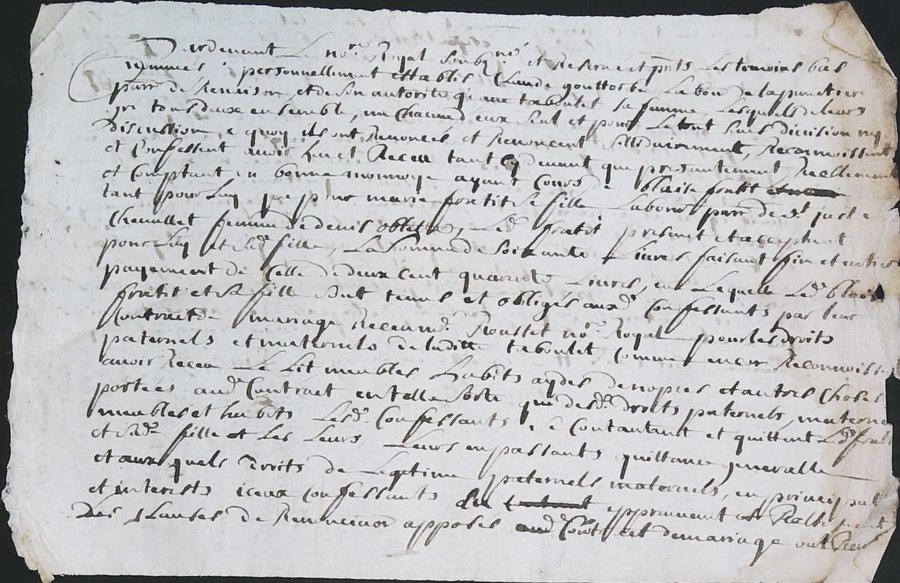 Pardevant Le no.re Royal soubz.né et Reservé et pnts Les temoins bas
nommes personnellement establis Claude gouttorbe Labour de la
parr de Renaison et de son autorite taboulet sa femme Lesquels de leurs
gré tous deux ensemble, un chacun d'eux seul et pour Le tout sans division ny
Discution a quoy ils ont Renoncés et Renoncent Reconnoissent
et Confessent avoir heu et Receu tant cydevant que presentement Reellement
et Comptant en bonne monnoye ayant Cours de blaise fratit
tant pour Luy que pour marie fratit Se fille Labour parr de st just en
Chevallet femme de denis Led. fratit present et acceptant
pour Luy et lad. fille, La somme de soixante Livres faisant fin et entier
payement de Celle de deux cent quarante Livres, en Laquelle Led. blaise
fratit et sa fille sont tenus et obligés auxd. Confessants par leur
Contract de mariage Receu me. Rousset no.re Royal pour les droits
paternels et maternels de ladite taboulet Comme encor Reconnoissent
avoir Receu Le Lit meubles habits aydes de nopces et autres Choses
portées aud. Contract en telle sorte que desd. droits paternels, maternels
meubles et habits Lesd. Confessants Se Contantant et quittent Led. fratit
et sad. fille et Les Leurs Leurs en passants quittance generalle
et aux quels droits de Legitime paternels maternels, en principal
et interests iceux Confessants
Des Clauses de apposés aud. Cont.ract de mariage ont